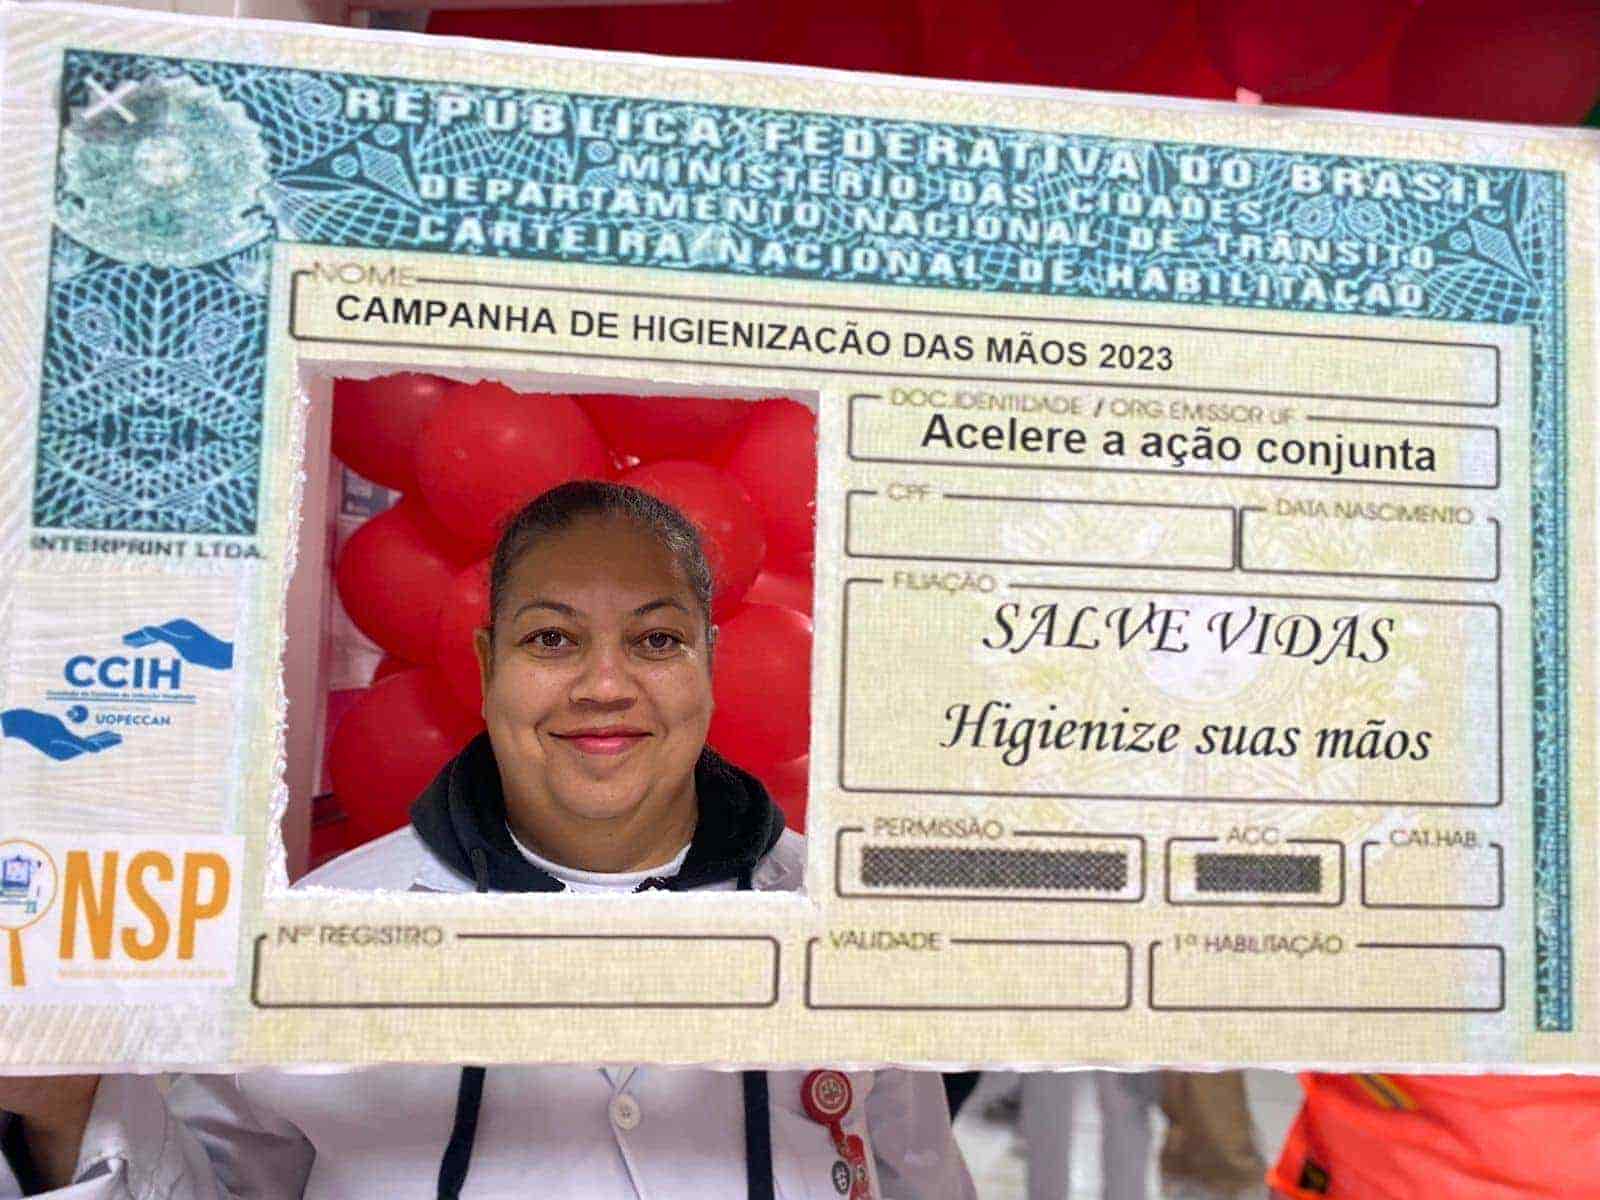 REPÚBLICA FEDERATIVA DO BRASIL
MINISTÉRIO DAS CIDADES
DEPARTAMENTO NACIONAL DE TRÂNSITO
CARTEIRA NACIONAL DE HABILITAÇÃO
NOME
CAMPANHA DE HIGIENIZAÇÃO DAS MÃOS 2023
DOC.IDENTIDADE / ORG EMISSOR UF
Acelere a ação conjunta
CPF
DATA NASCIMENTO
FILIAÇÃO
SALVE VIDAS
Higienize suas mãos
INTERPRINT LTDA.
CCIH
UOPECCAN
NSP
PERMISSÃO
ACC
CAT.HAB.
Nº REGISTRO
VALIDADE
1ª HABILITAÇÃO